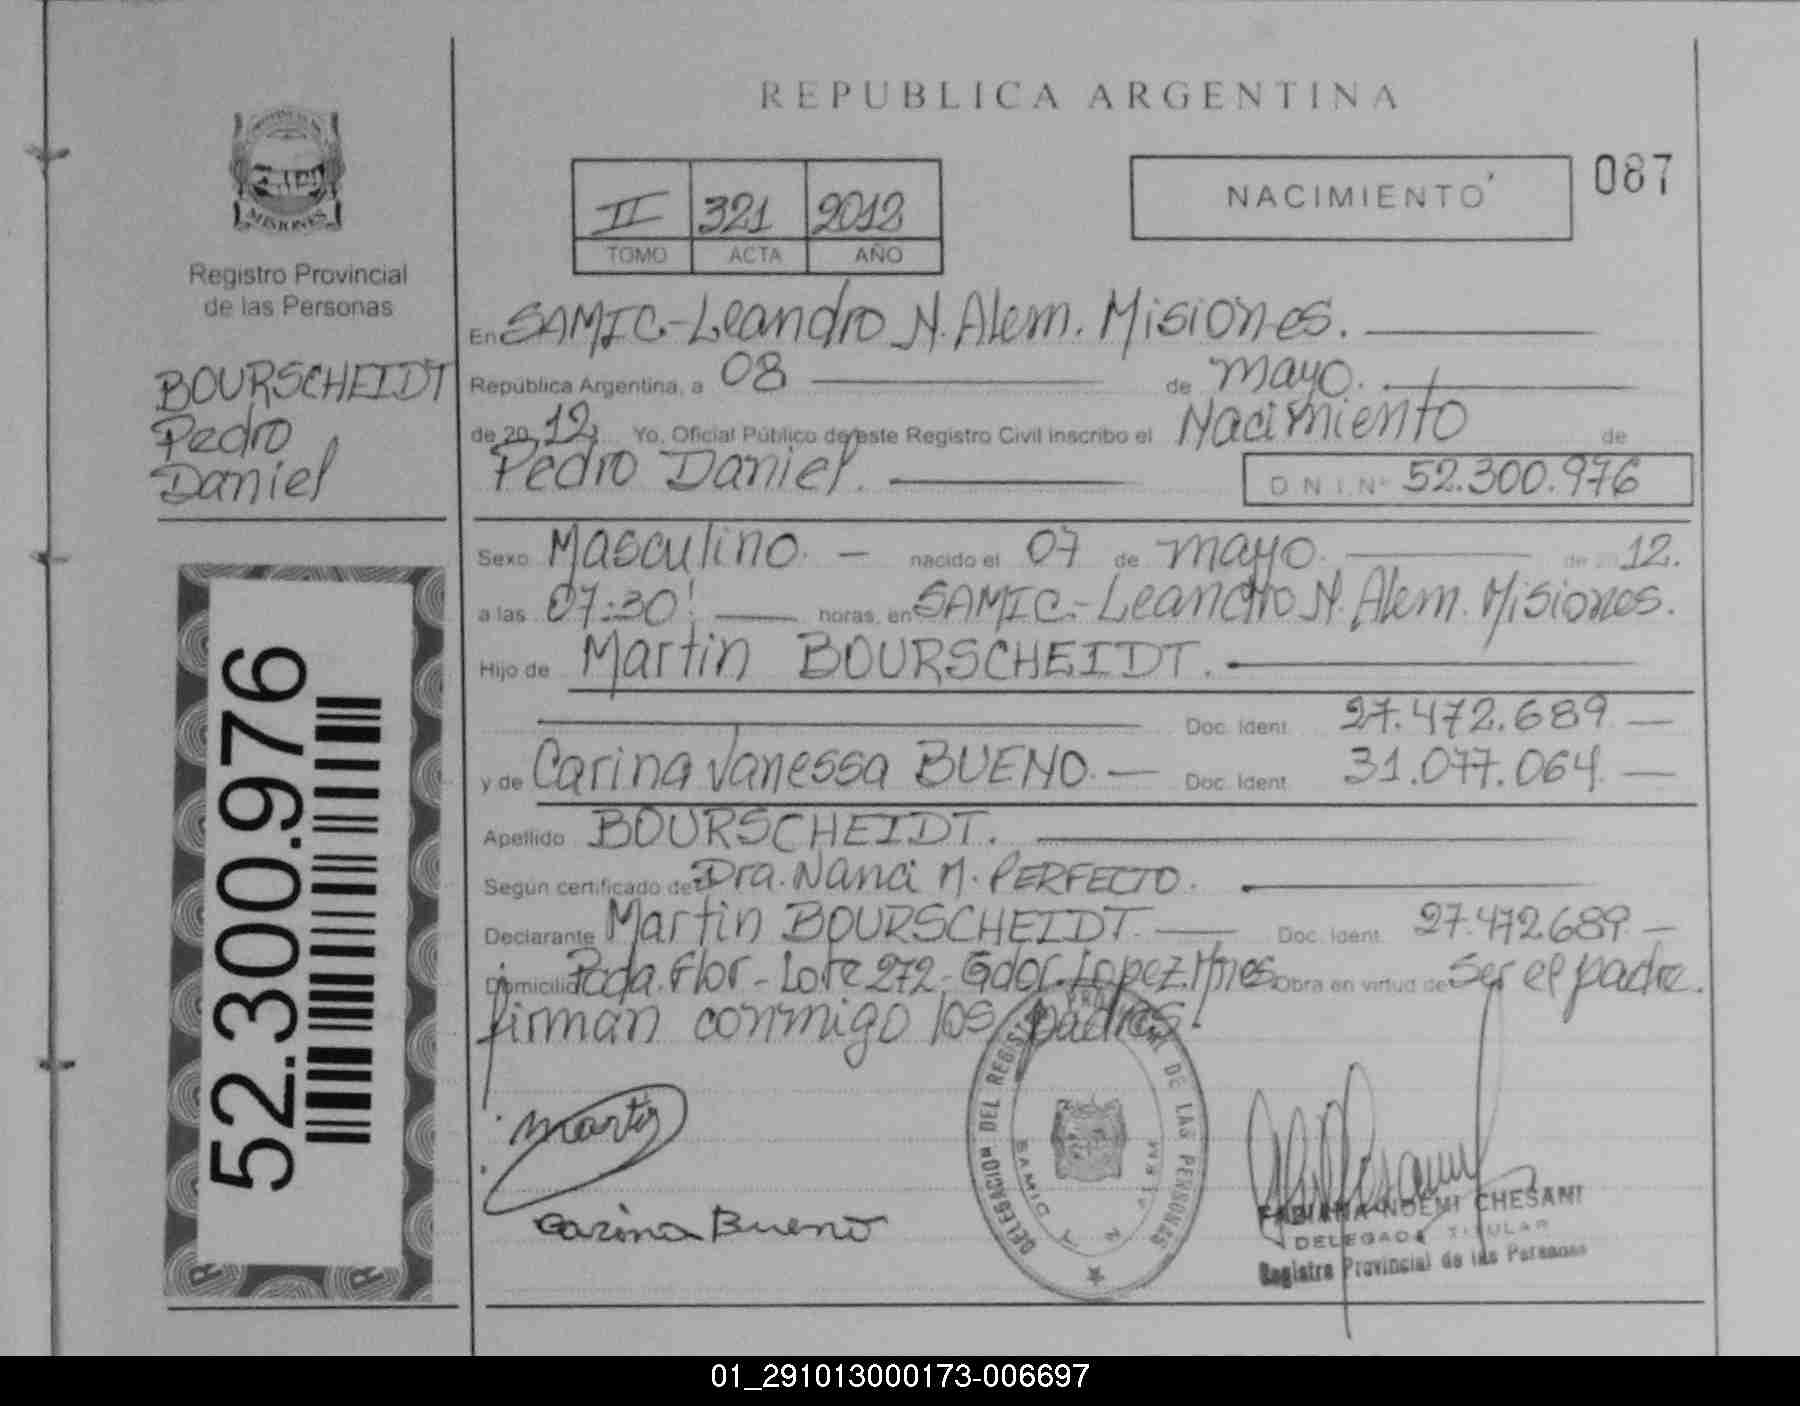 REPUBLICA ARGENTINA
MISIONES
Registro Provincial
de las Personas
BOURSCHEIDT
Pedro
Daniel
52.300.976
II 321 2012
TOMO ACTA AÑO
NACIMIENTO
087
En SAMIC-Leandro N. Alem. Misiones.
República Argentina, a 08 de mayo.
de 2012. Yo, Oficial Público de este Registro Civil inscribo el Nacimiento de
Pedro Daniel. D N I Nº 52.300.976
Sexo Masculino. nacido el 07 de mayo. de 2012.
a las 07:30! horas, en SAMIC.-Leandro N. Alem. Misiones.
Hijo de Martin BOURSCHEIDT.
Doc. Ident. 27.472.689
y de Carina Vanessa BUENO. Doc. Ident. 31.077.064
Apellido BOURSCHEIDT.
Según certificado de Dra. Nanci M. PERFECTO.
Declarante Martin BOURSCHEIDT. Doc. Ident. 27.472.689
Domicilio Pcda. Flor - Lote 272 - Gdor. Lopez. Mnes. Obra en virtud de Ser el padre.
firman conmigo los padres.
Martin
Carina Bueno
DELEGACION DEL REGISTRO PROVINCIAL DE LAS PERSONAS
SAMIC ALEM
FABIANA NOEMI CHESANI
DELEGADA TITULAR
Registro Provincial de las Personas
01_291013000173-006697